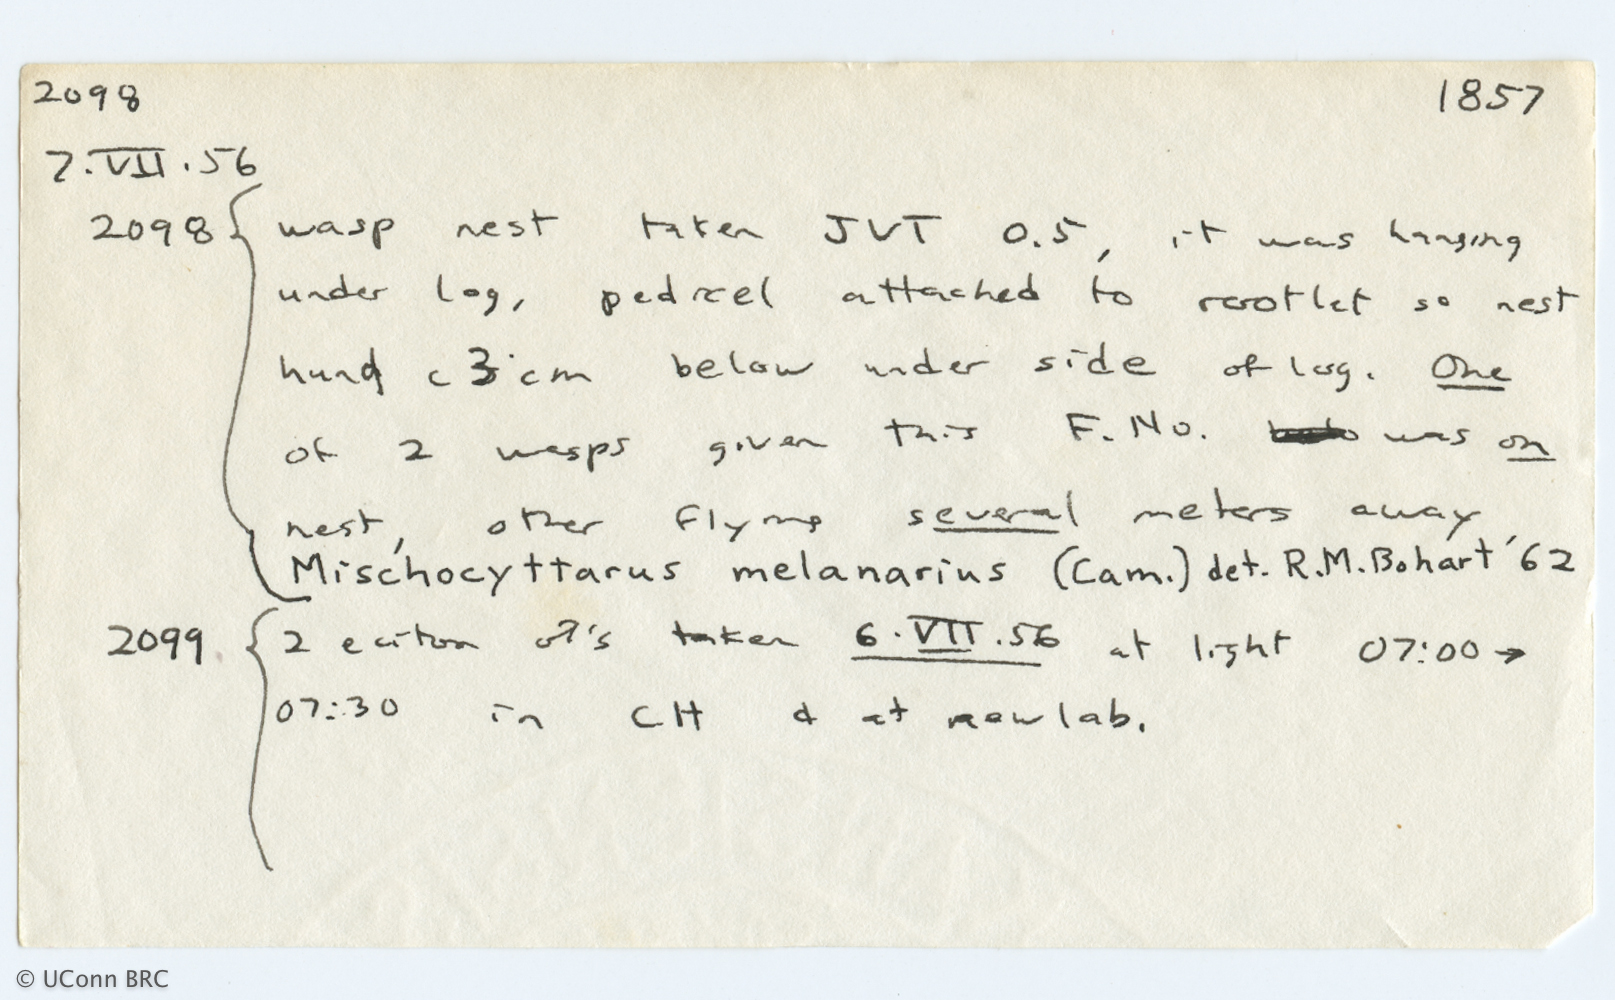 2098 1857
7.VII.56
2098 wasp nest taken JVT 0.5, it was hanging
under log, pedicel attached to rootlet so nest
hung c 3 cm below under side of log. One
of 2 wasps given this F. No. was on
nest, other flying several meters away
Mischocyttarus melanarius (Cam.) det. R.M. Bohart '62
2099 2 eciton ♂'s taken 6.VII.56 at light 07:00 →
07:30 in CH & at new lab.
© UConn BRC